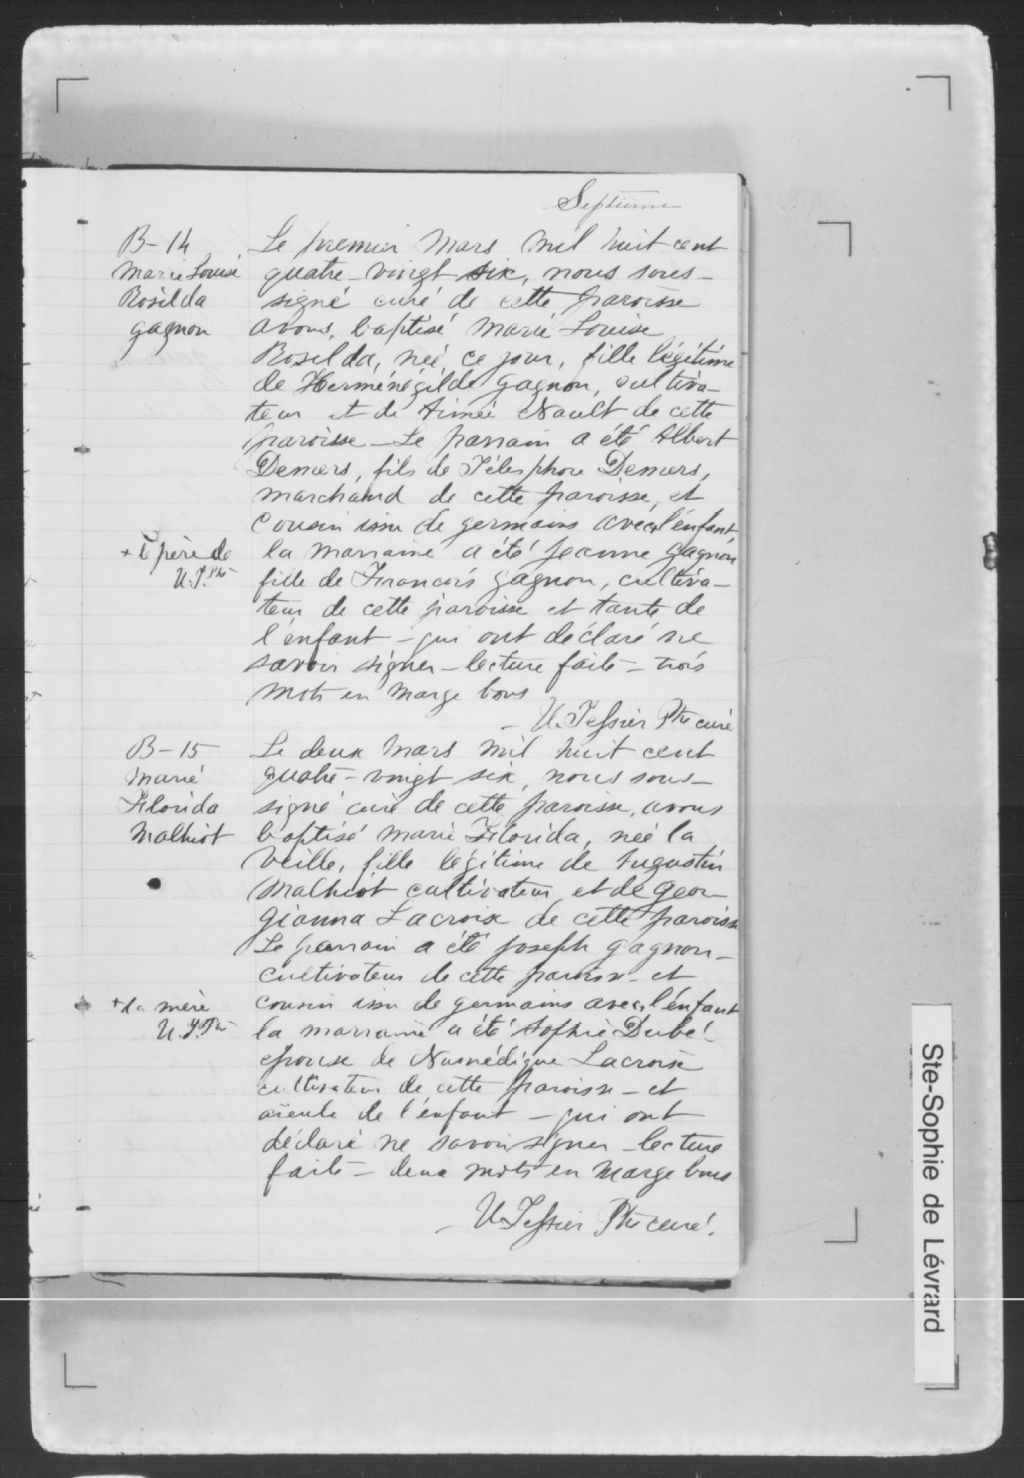 Septième
B-14
Marie Louise
Rosilda
Gagnon
Le premier Mars Mil huit cent
quatre-vingt six, nous sous-
signé curé de cette paroisse
avons, baptisé Marie Louise
Rosilda, née ce jour, fille légitime
de Herménégilde Gagnon, cultiva-
teur et de Aimée Nault de cette
paroisse - Le parrain a été Albert
Demers, fils de Télesphore Demers,
marchand de cette paroisse, et
Cousin issu de germains avec + l'enfant,
+ le père de
U.T. Ptre
la marraine a été Jeanne Gagnon
fille de Francois Gagnon, cultiva-
teur de cette paroisse et tante de
l'enfant - qui ont déclaré ne
savoir signer - lecture faite - trois
Mots en marge bons
- U. Tessier Ptre curé
B-15
Marie
Florida
Malhiot
Le deux Mars Mil huit cent
quatre-vingt six, nous sous-
signé curé de cette paroisse, avons
baptisé Marie Florida, née la
veille, fille légitime de Augustin
Malhiot cultivateur et de Geor
gianna Lacroix de cette paroisse
Le parrain a été Joseph Gagnon-
cultivateur de cette paroisse - et
+ la mère
U.T. Ptre
cousin issu de germains avec + l'enfant
la marraine a été Sophie Dubé-
épouse de Lacroix
cultivateur de cette paroisse - et
aïeule de l'enfant - qui ont
déclaré ne savoir signer - lecture
faite - deux mots en Marge bons
- U. Tessier Ptre curé.
Ste-Sophie de Lévrard